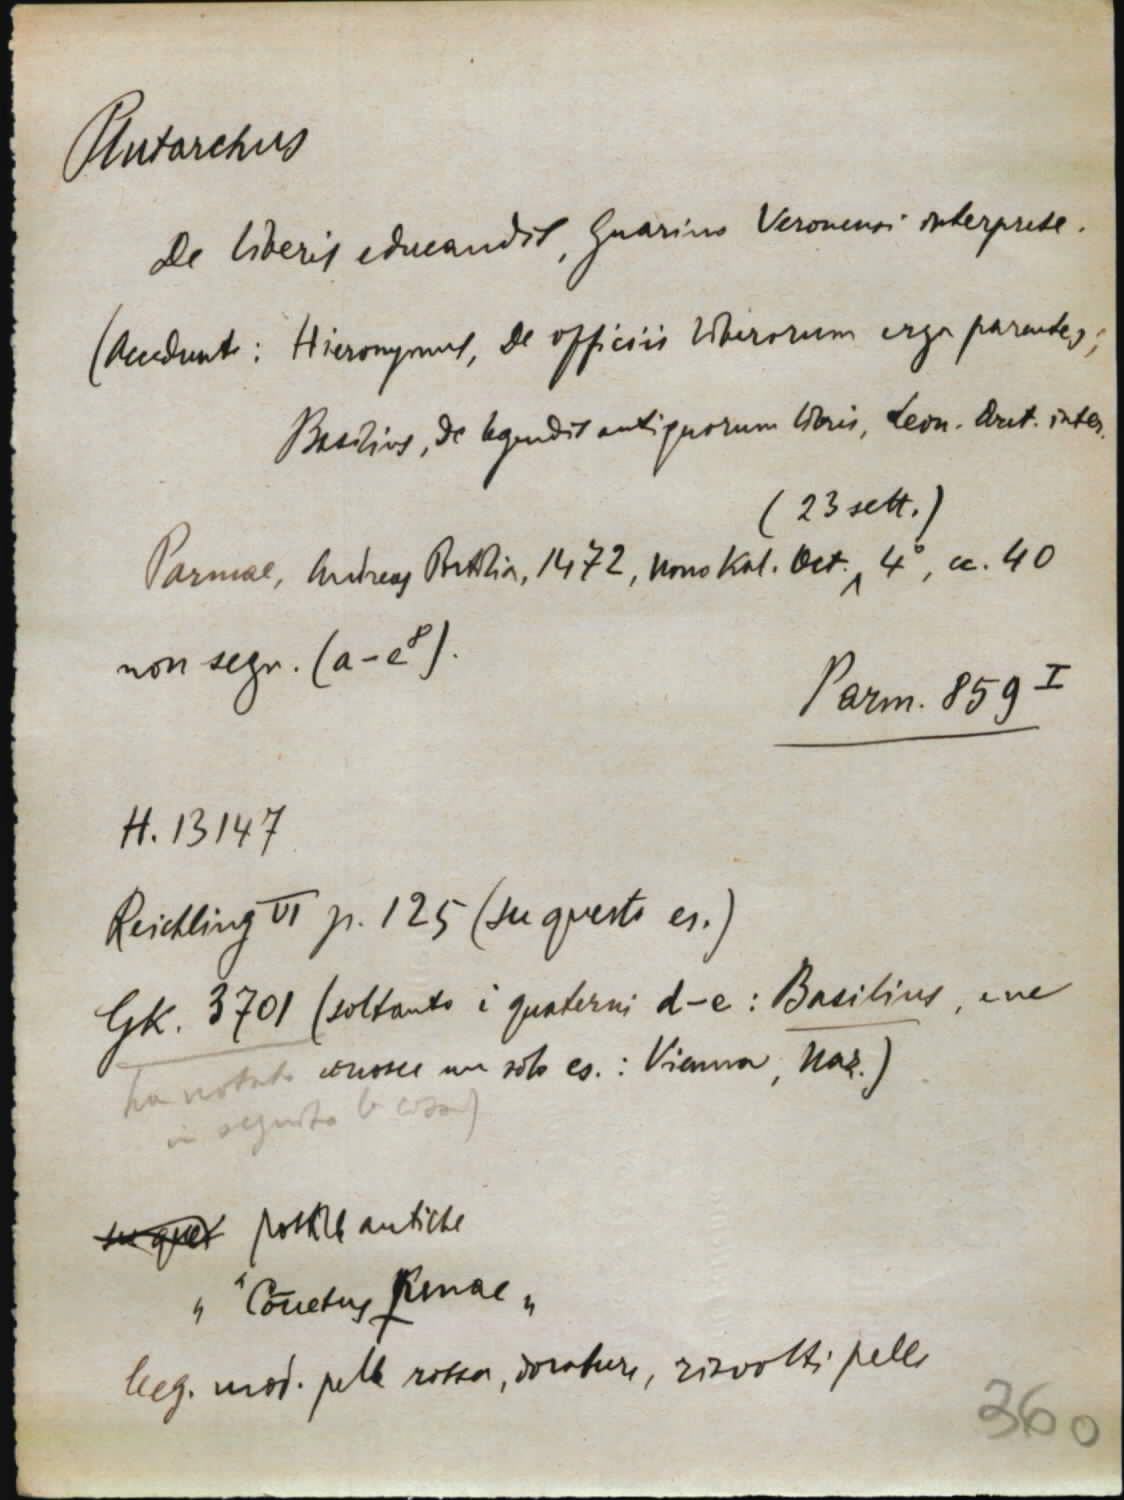 Plutarchus
De liberis educandis, Guarino Veronensi interprete.
(Accedunt: Hieronymus, De officiis liberorum erga parentes;
Basilius, De legendis antiquorum libris, Leon. Aret. inter.
(23 sett.)
Parmae, Andreas Portilia, 1472, nono Kal. Oct. ^ 4°, cc. 40
non segn. (a-e⁸).
Parm. 859 I
H. 13147
Reichling VI p. 125 (su questo es.)
GK. 3701 (soltanto i quaterni d-e: Basilius, e ne
conosce un solo es.: Vienna, Naz.)
ha notato
in seguito la cosa)
su ques postille antiche
" "Cōuetus Parmae"
leg. mod. pelle rossa, dorature, risvolti pelle
360